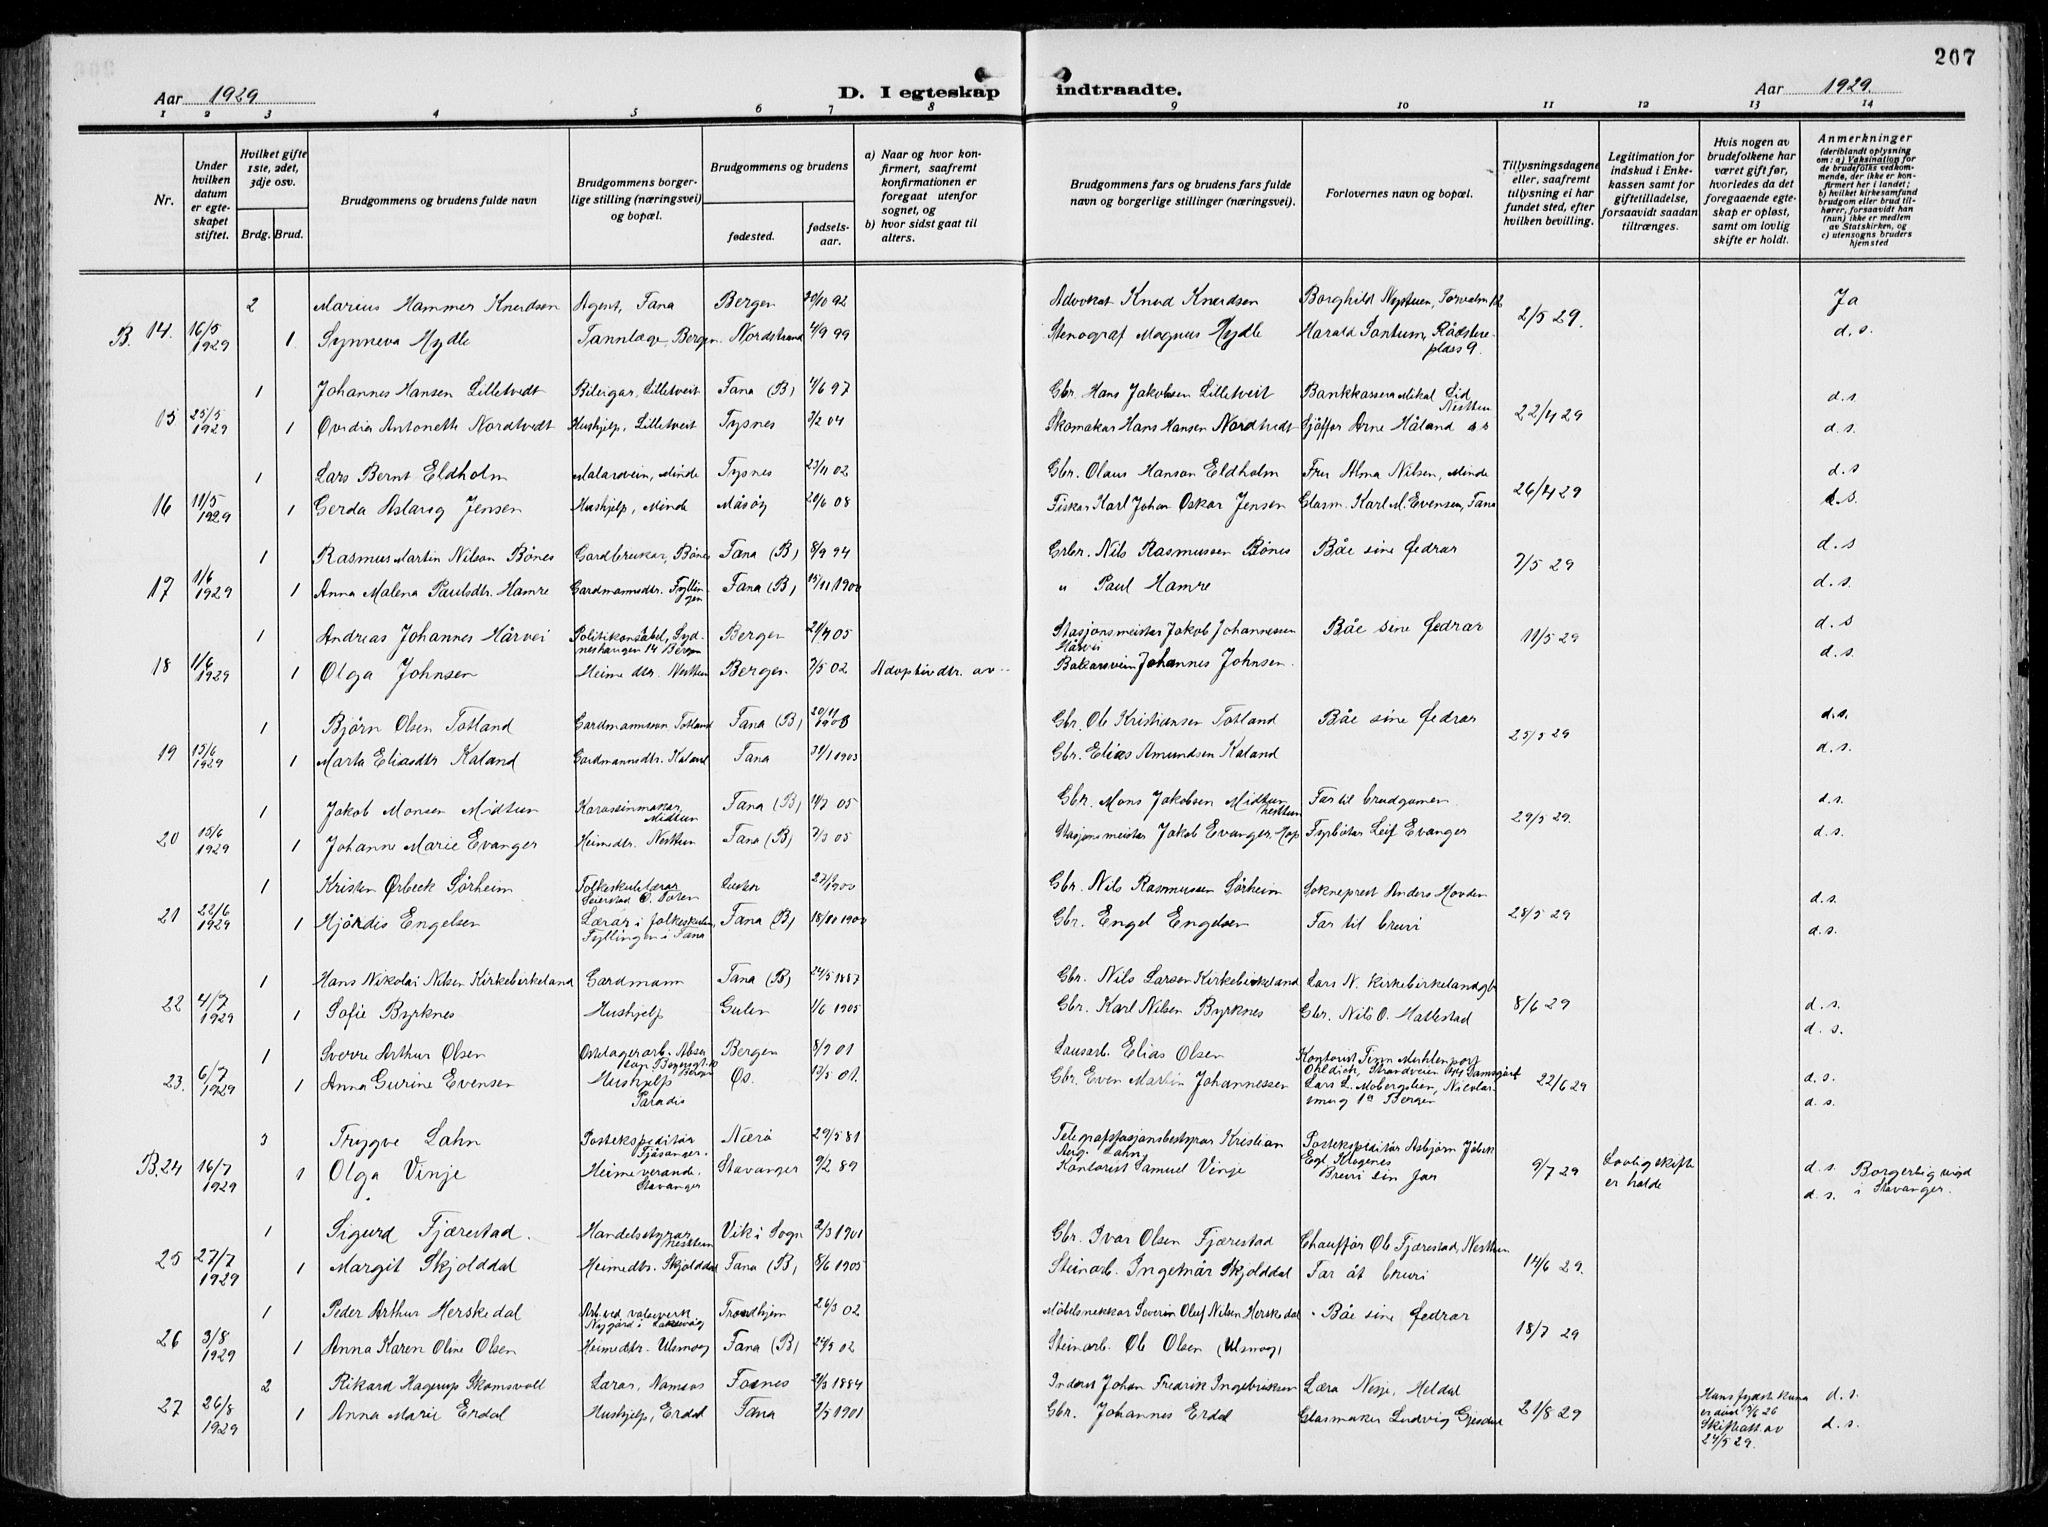 207
Aar 1929
D. I egteskap indtraadte.
Aar 1929.
1 2 3 4 5 6 7 8 9 10 11 12 13 14
Nr.
Under hvilken datum er egteskapet stiftet.
Hvilket gifte 1ste, 2det, 3dje osv.
Brdg. Brud.
Brudgommens og brudens fulde navn
Brudgommens borgerlige stilling (næringsvei) og bopæl.
Brudgommens og brudens
fødested.
fødselsaar.
a) Naar og hvor konfirmert, saafremt konfirmationen er foregaat utenfor sognet, og
b) hvor sidst gaat til alters.
Brudgommens fars og brudens fars fulde navn og borgerlige stillinger (næringsvei).
Forlovernes navn og bopæl.
Tillysningsdagene eller, saafremt tillysning ei har fundet sted, efter hvilken bevilling.
Legitimation for indskud i Enkekassen samt for giftetilladelse, forsaavidt saadan tiltrænges.
Hvis nogen av brudefolkene har været gift før, hvorledes da det foregaaende egteskap er opløst, samt om lovlig skifte er holdt.
Anmerkninger
(deriblandt oplysning om: a) Vaksination for de brudefolks vedkommende, der ikke er konfirmert her i landet; b) hvilket kirkesamfund brudgom eller brud tilhører, forsaavidt han (hun) ikke er medlem av Statskirken, og c) utensogns bruders hjemsted
2 Marius Hammer Knudsen Agent, Fana Bergen 20/10 92 Advokat Knud Knudsen Borghild Nystuen, Torvalm 12 Ja
B. 14. 16/5 1929 1 Synneva Hydle Tannlæge, Bergen. Nordstrand 4/9 99 Stenograf Magnus Hydle Harald Sontum, Rådstuplass 9. 2/5 29. d. s.
1 Johannes Hansen Lilletvedt Bileigar, Lilletveit Fana (B) 4/6 97 Gbr. Hans Jakobsen Lilletveit Bankkasserar Mikal Lid Nesttun d. s.
15 25/5 1929 1 Øvidia Antonette Nordtvedt Hushjelp, Lilletveit Tysnes 3/2 04 Skomakar Hans Hansen Nordtvedt Sjåffør Arne Håland 22/4 29 d. s.
1 Lars Bernt Eldholm Malarsvein, Minde Tysnes 23/11 02 Gbr. Olaus Hanson Eldholm Fru Alma Nilsen, Minde d. s
16 11/5 1929 1 Gerda Aslaug Jensen Hushjelp, Minde Måsøy 20/6 08 Fiskar Karl Johan Oskar Jensen Glasm. Karl M. Evensen, Fana 26/4 29 d. s.
1 Rasmus Martin Nilson Bönes Gardbrukar, Bönes Fana (B) 8/9 94 Gbr. Nils Rasmussen Bönes Båe sine fedrar d. s
17 1/6 1929 1 Anna Malena Paulsdtr. Hamre Gardmannsdtr. Fyllingen Fana (B) 15/11 1900 " Paul Hamre 7/5 29 d. s.
1 Andreas Johannes Hårvei Politikonstabel, Sydneshaugen 14 Bergen Bergen 21/7 05 Stasjonsmeister Jakob Johannessen Hårvei Båe sine fedrar d. s
18 1/6 1929 1 Olga Johnsen Heime dtr. Nesttun Bergen 7/5 02 Adoptivdtr. av Bakarsvein Johannes Johnsen. 11/5 29 d. s.
1 Björn Olsen Totland Gardmannsson Totland Fana (B) 20/11 1900 Gbr. Ole Kristiansen Totland Båe sine fedrar d. s.
19 15/6 1929 1 Marta Eliasdtr Kaland Gardmannsdtr. Kaland Fana 31/1 1903 Gbr. Elias Amundsen Kaland 25/5 29 d. s.
1 Jakob Monsen Midtun Karossimakar Midtun Fana (B) 14/7 05 Gbr. Mons Jakobsen Midtun Nesttun Far til brudgomen d. s.
20 15/6 1929 1 Johanne Marie Evanger Heimedtr. Nesttun Fana (B) 7/3 05 Stasjonsmeister Jakob Evanger, Hop Fyrbötar Leif Evanger 29/5 29. d. s.
1 Kristen Ørbeck Sörheim Folkeskulelærar Seierstad Ö. Toten Luster 1900 Gbr. Nils Rasmussen Sörheim Sokneprest Anders Hovden d. s.
21 22/6 1929 1 Hjördis Engelsen Lærar i folkeskulen, Fyllingen i Fana Fana (B) 18/11 1900 Gbr. Engel Engelsen Far til bruri 28/5 29 d. s.
1 Hans Nikolai Nilsen Kirkebirkeland Gardmann Fana (B) 24/5 1887 Gbr. Nils Larsen Kirkebirkeland Lars N. Kirkebirkeland gbr
22 4/7 1929 1 Sofie Byrknes Hushjelp Gulen 1/6 1905 Gbr. Karl Nilsen Byrknes Gbr. Nils O. Hallestad 8/6 29 d. s. d. s.
1 Sverre Arthur Olsen Bergen 8/9 01 Lausarb. Elias Olsen Kontorist Finn Muhlenport Ohldick, Strandveien Damsgård
23. 6/7 1929 1 Anna Gurine Evensen Hushjelp Paradis Os. 13/5 01. Gbr. Even Martin Johannessen Lars L. Mobergslien, Nicolaismug 1a Bergen 22/6 29 d. s. d. s.
3 Trygve Lahn Postekspeditör Fjösanger. Nærö 29/5 81 Telegrafstasjonsbestyrar Kristian Lahn Postekspeditör Asbjörn
B. 24 16/7 1929 1 Olga Vinje Heimeverande. Stavanger Stavanger 9/2 89 Kontorist Samuel Vinje Bruri sin far 9/7 29 Lovleg skifte er halde d. s. d. s. Borgerlig vigd i Stavanger.
1 Sigurd Fjærestad. Handelsstyrar Nesttun Vik i Sogn 2/3 1901 Gbr. Ivar Olsen Fjærestad Chauffør Ole Fjærestad, Nesttun
25 27/7 1929 1 Margit Skjolddal Heimedtr. Skjolddal Fana (B) 8/6 1905 Steinarb. Ingemår Skjolddal Far åt bruri 14/6 29.
1 Peder Arthur Herskedal Arb. ved valseverk Nygård i Laksevåg Trondhjem 26/3 02 Möbelsnekkar Severin Oluf Nilsen Herskedal Båe sine fedrar
26 3/8 1929 1 Anna Karen Oline Olsen Heimedtr. Ulsmåg Fana (B) 24/5 02 Steinarb. Ole Olsen (Ulsmåg) 18/7 29
2 Rikard Hagerup Skomsvoll Lærar, Namsos Fosnes 21/3 1884 Inderst Johan Fredrik Ingebriktsen Læra Nesje, Heldal d. s.
27 26/8 1929 1 Anna Marie Erdal Hushjelp, Erdal Fana 2/5 1901 Gbr. Johannes Erdal Glasmaker Ludvig Gjesdal 21/8 29 Hans fyrste kona er daud 7/6 26 Skifteatt. av 24/5 29. d. s.